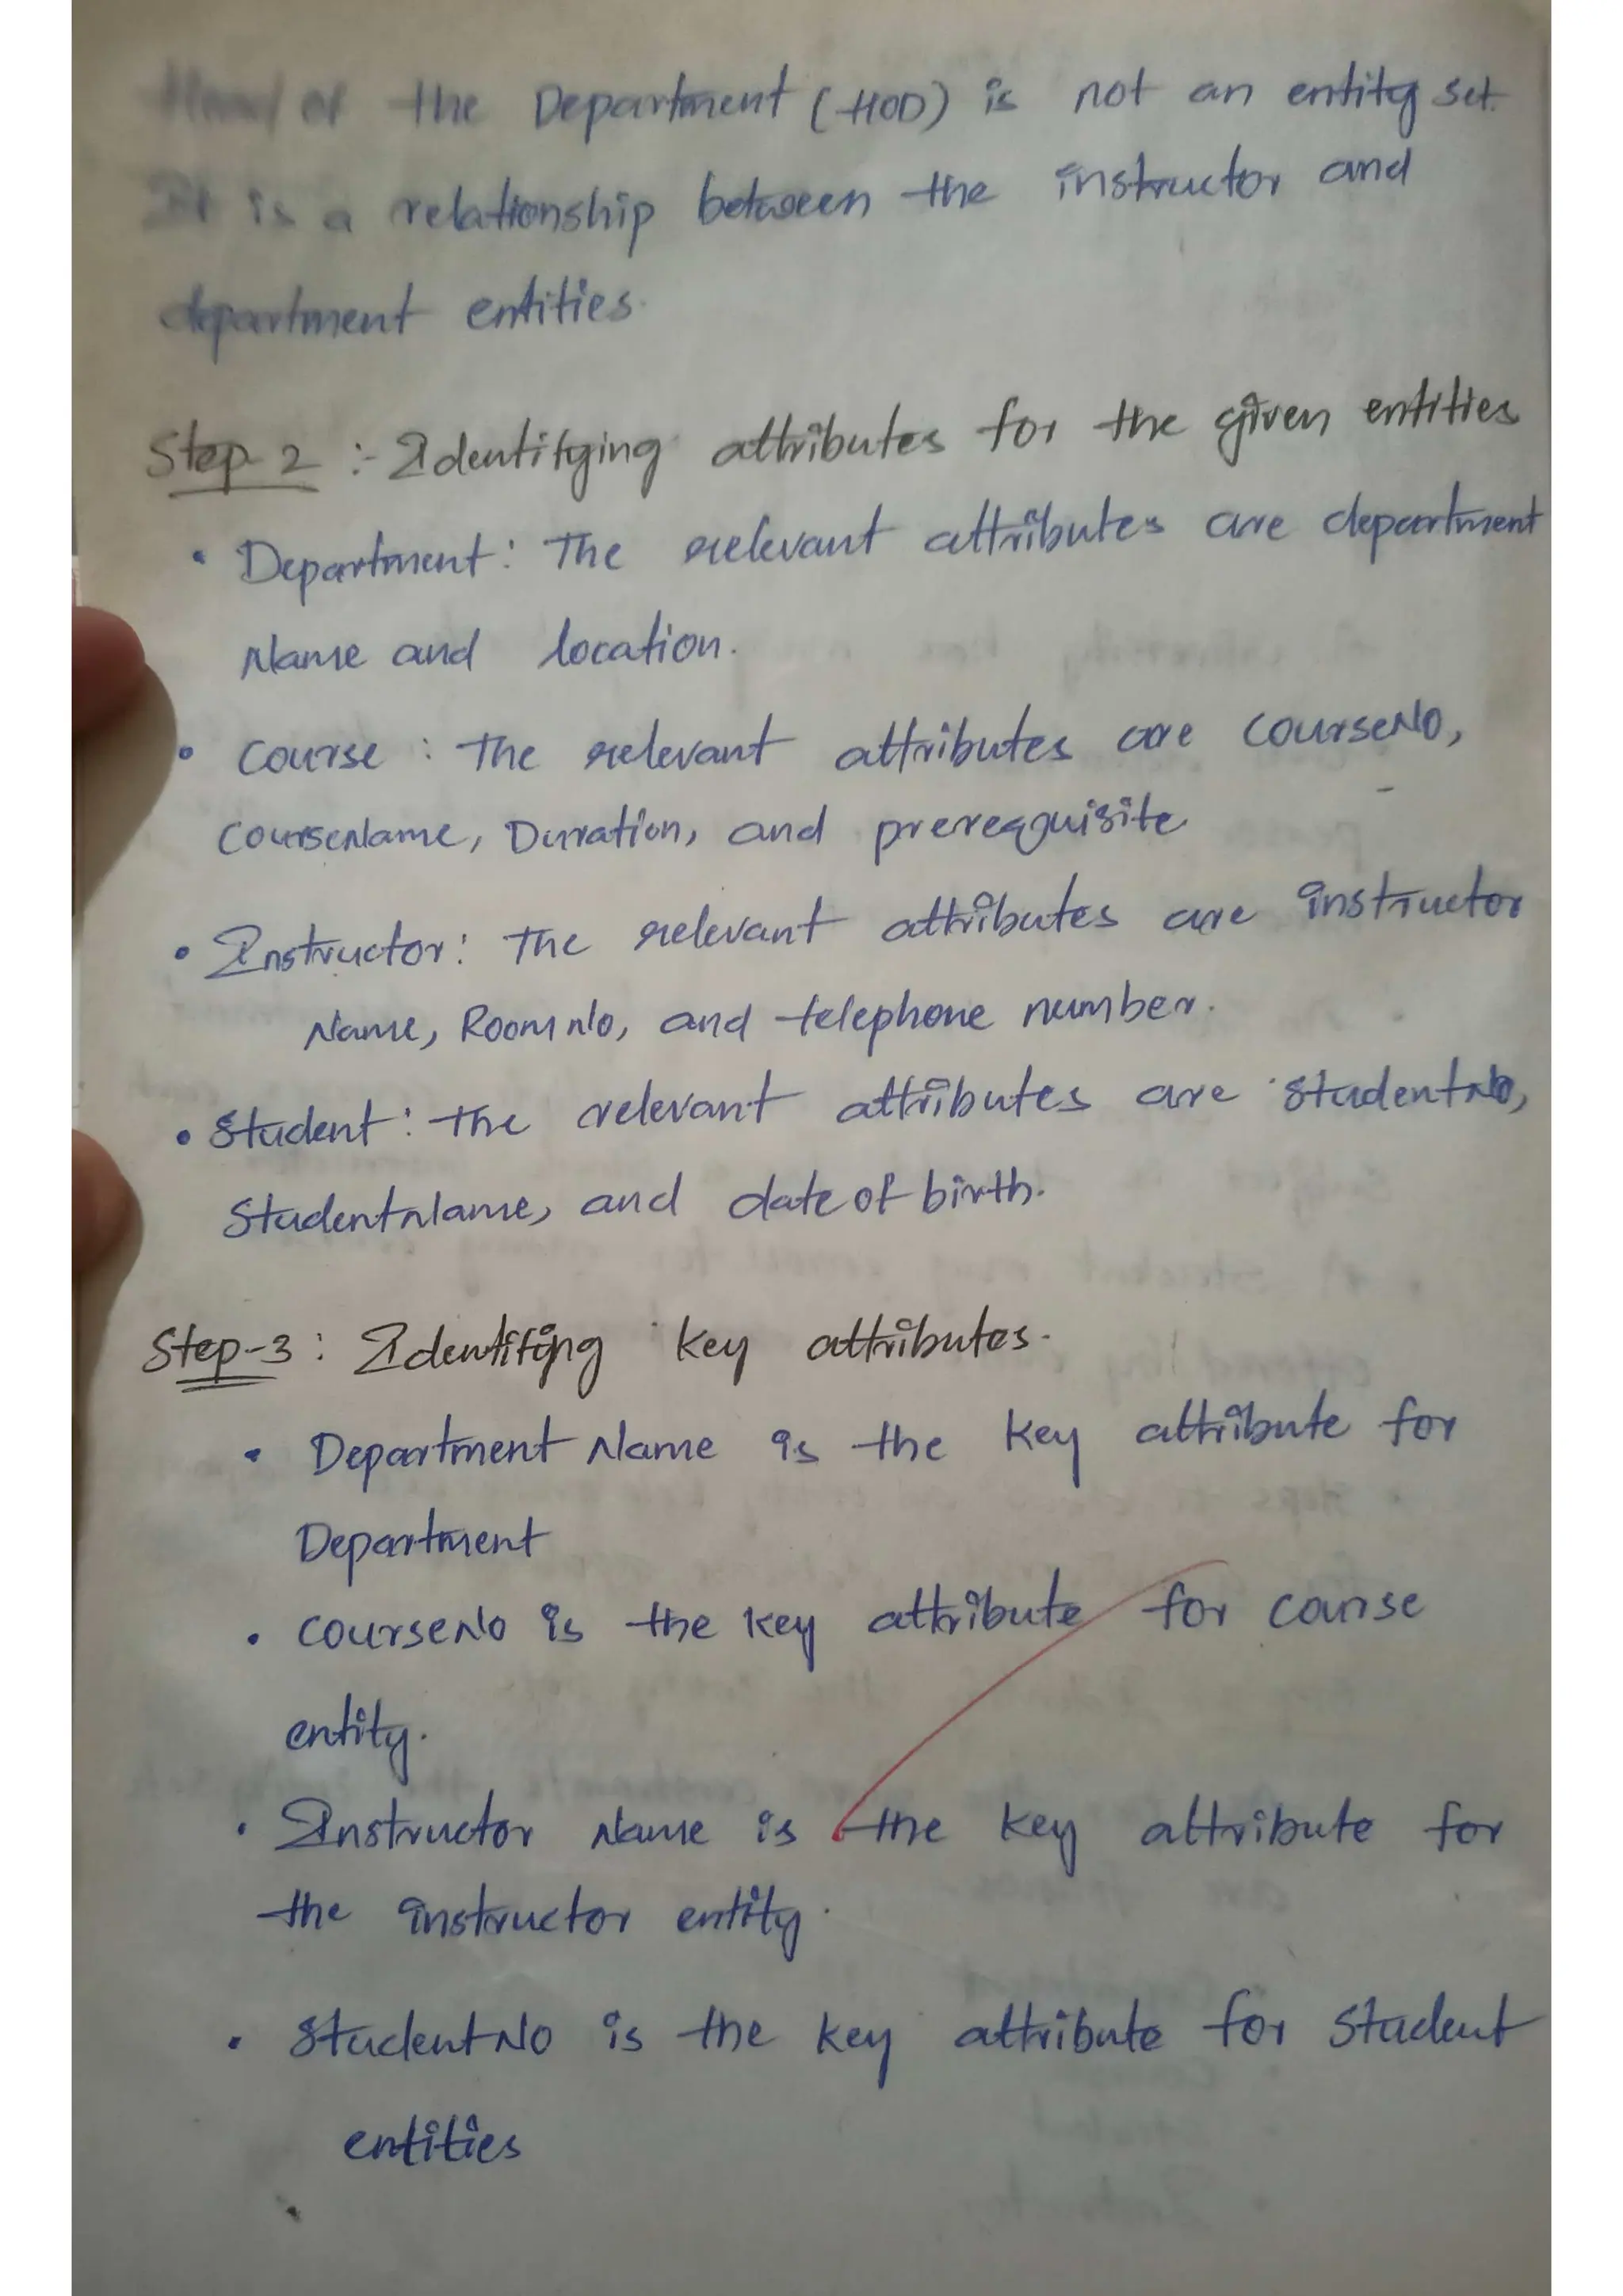 Head of the Department (HOD) is not an entity set.
It is a relationship between the instructor and
department entities.
Step-2 :- Identifying attributes for the given entities
• Department: The relevant attributes are department
Name and location.
• Course : The relevant attributes are CourseNo,
CourseName, Duration, and prerequisite
• Instructor: The relevant attributes are instructor
Name, Room No, and telephone number.
• Student: The relevant attributes are StudentNo,
StudentName, and date of birth.
Step-3 : Identifing key attributes.
• Department Name is the key attribute for
Department
• CourseNo is the key attribute for course
entity.
• Instructor Name is the key attribute for
the instructor entity.
• StudentNo is the key attribute for student
entities